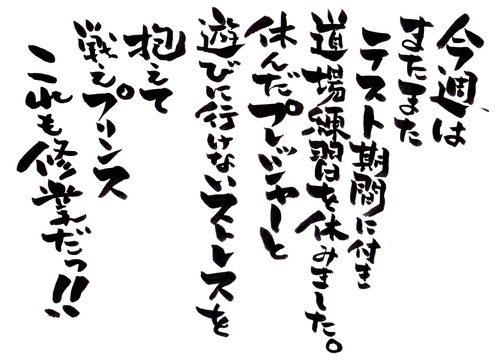 今週は
またまた
テスト期間に付き
道場練習を休みました。
休んだプレッシャーと
遊びに行けないストレスを
抱えて
戦えプリンス
これも修業だっ!!